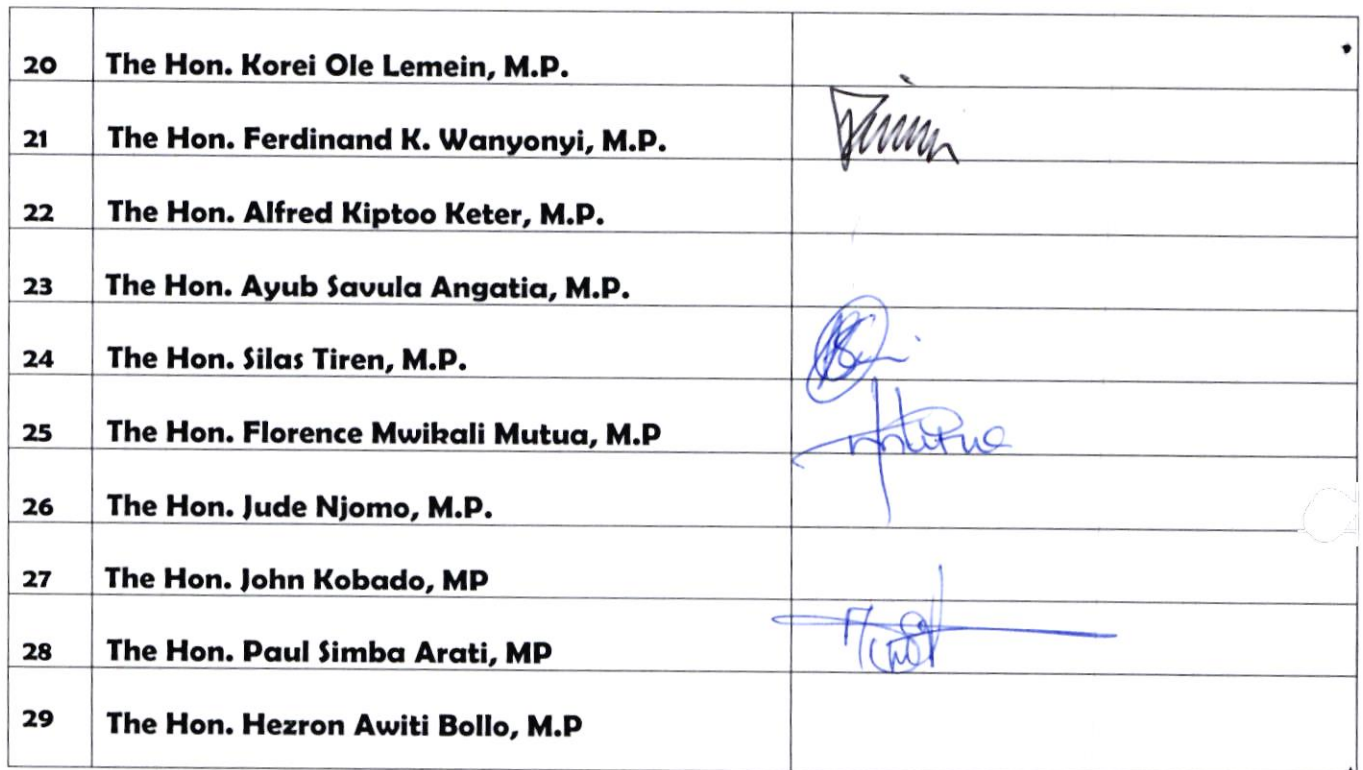 20 The Hon. Korei Ole Lemein, M.P.
21 The Hon. Ferdinand K. Wanyonyi, M.P.
22 The Hon. Alfred Kiptoo Keter, M.P.
23 The Hon. Ayub Savula Angatia, M.P.
24 The Hon. Silas Tiren, M.P.
25 The Hon. Florence Mwikali Mutua, M.P
26 The Hon. Jude Njomo, M.P.
27 The Hon. John Kobado, MP
28 The Hon. Paul Simba Arati, MP
29 The Hon. Hezron Awiti Bollo, M.P